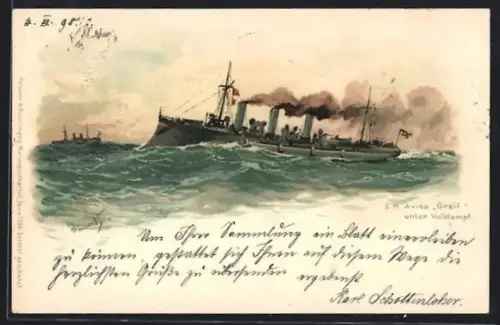 4. III. 98.
S.M. Aviso „Greif“
unter Volldampf.
Um Ihrer Sammlung ein Blatt einverleiben
zu können, gestattet sich Ihnen auf diesem Wege die
herzlichsten Grüße zu übersenden ergebenst
Karl Schottenloher.